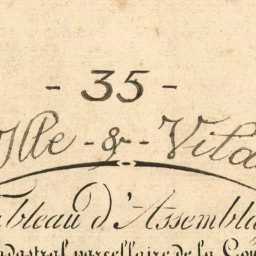 - 35 -
Ille - & - Vila
ableau d'Assembla
adastral parcellaire de la Com